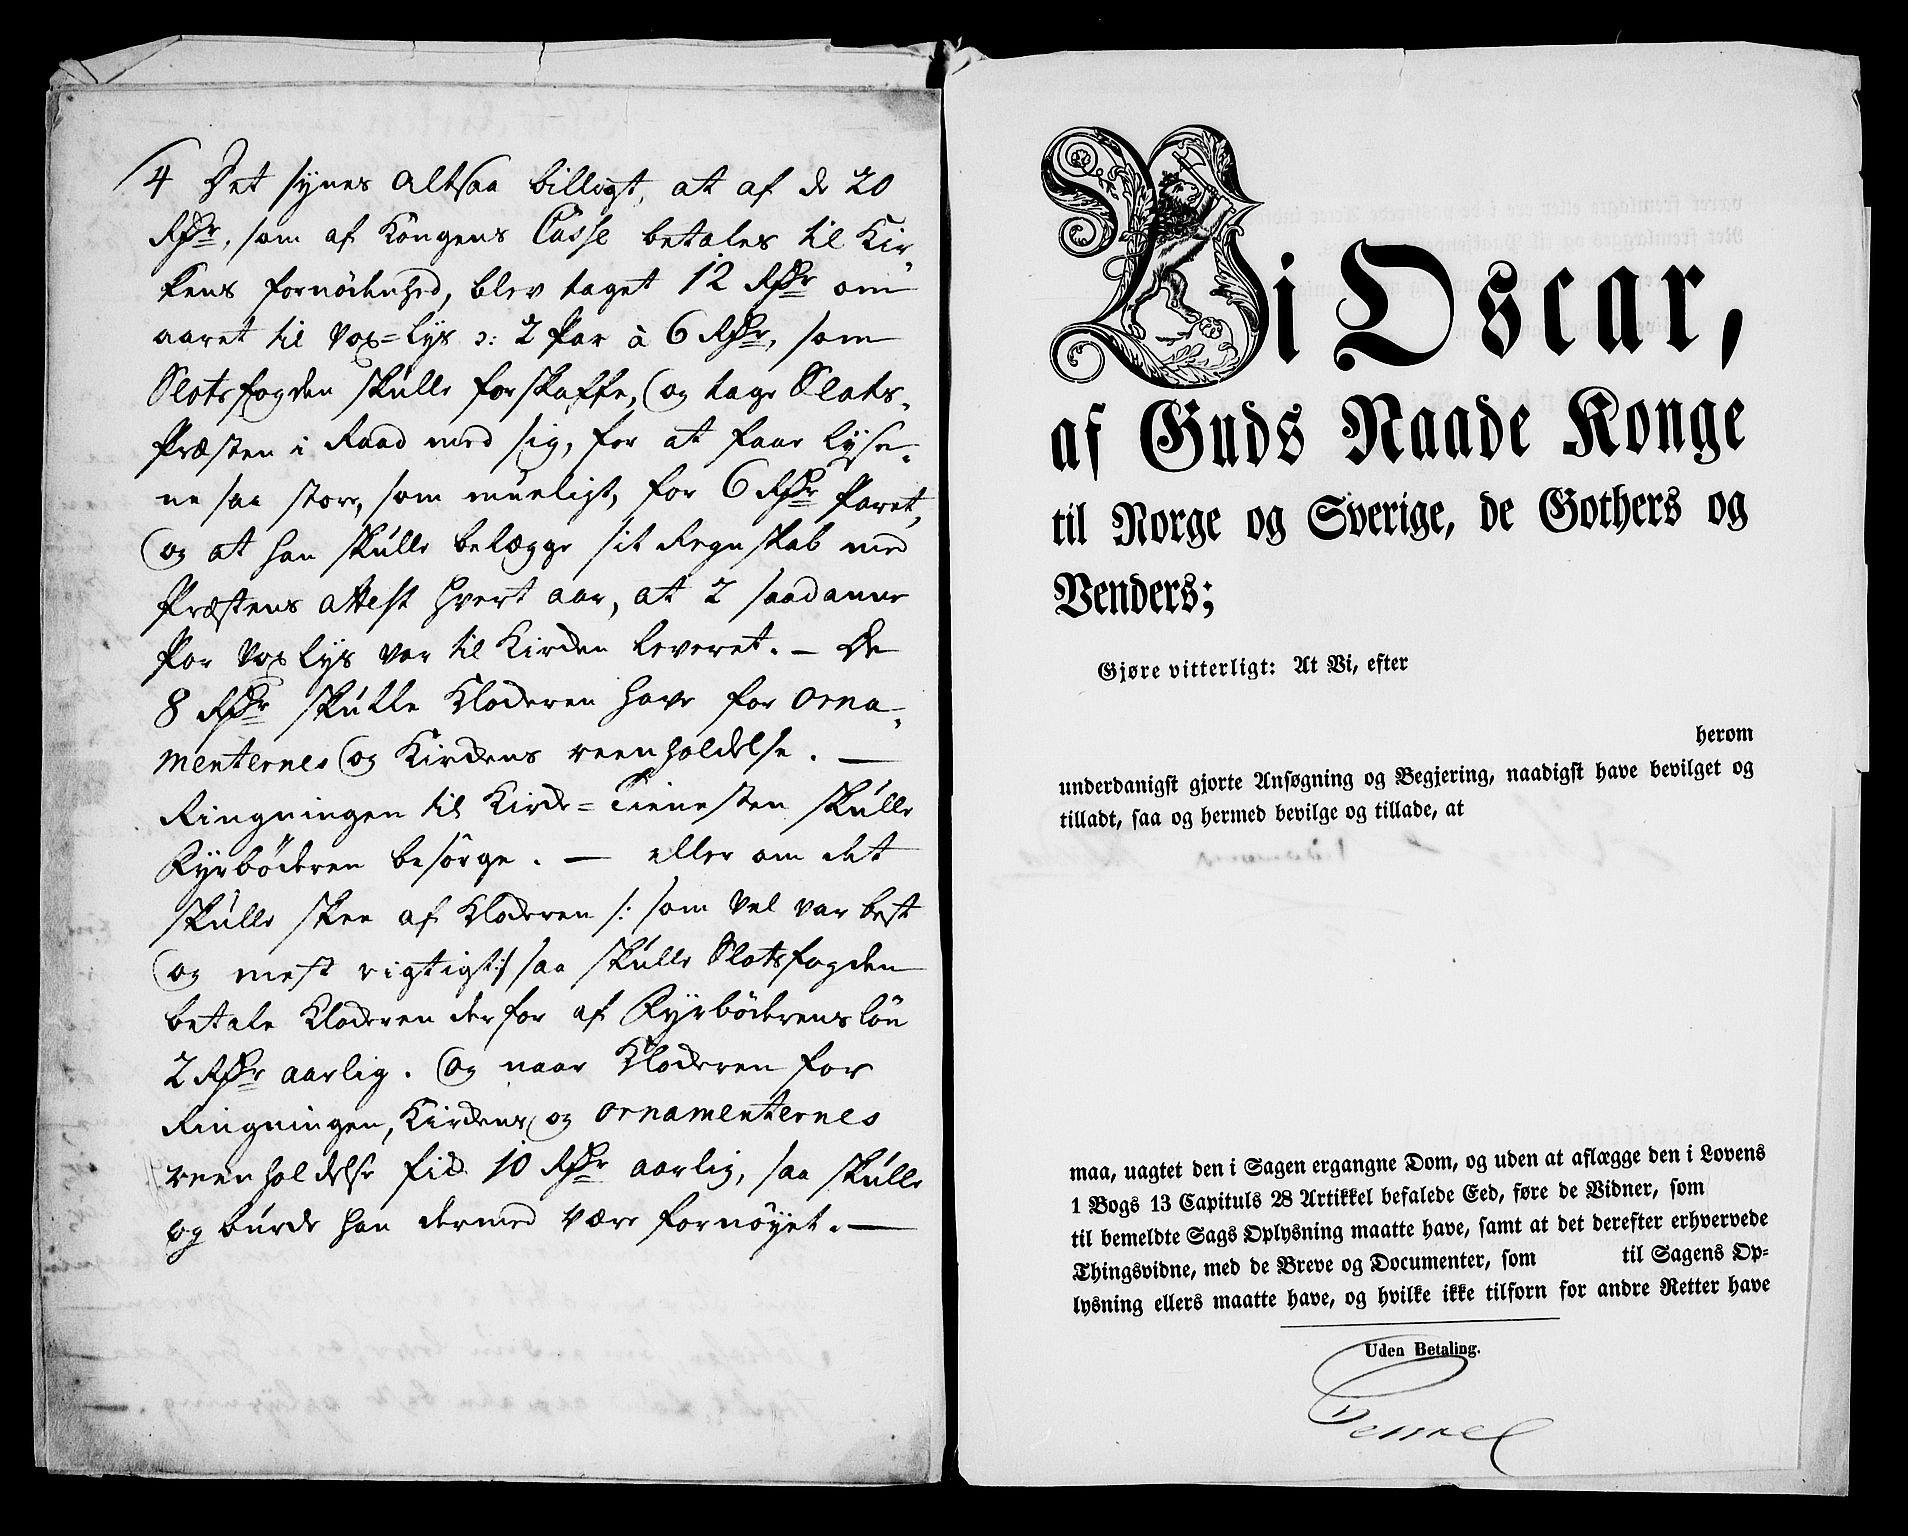 4 Det synes altsaa billigt, at af de 20
Rdr, som af Kongens Casse betales til Kir-
kens fornödenhed, blev taget 12 Rdr om
aaret til Vox=Lys ɔ: 2 Par à 6 Rdr, som
Slotsfogden skulle forskaffe, og tage Slots-
Præsten i Raad med sig, for at faae Lyse-
ne saa store, som mueligt, for 6 Rdr Paret,
og at han skulle belægge sit Regnskab med
Præstens attest hvert aar, at 2 saadanne
Par Vox Lys var til Kirken leveret. – De
8 Rdr skulle Klokeren have for orna-
menternes og Kirkens reenholdelse. —
Ringningen til Kirke=Tienesten skulle
Fyrböderen besörge. — eller om det
skulle skee af Klokeren /: som vel var best
og mest rigtigt :/ saa skulle Slotsfogden
betale Klokeren derfor af Fyrböderens lön
2 Rdr aarlig. Og naar Klokeren for
Ringningen, Kirkens og ornamenternes
reenholdelse fik 10 Rdr aarlig, saa skulle
og burde han dermed være fornöyet. —
Vi Oscar,
af Guds Naade Konge
til Norge og Sverige, de Gothers og
Venders;
Gjøre vitterligt: At Vi, efter
herom
underdanigst gjorte Ansøgning og Begjering, naadigst have bevilget og
tilladt, saa og hermed bevilge og tillade, at
maa, uagtet den i Sagen ergangne Dom, og uden at aflægge den i Lovens
1 Bogs 13 Capituls 28 Artikkel befalede Eed, føre de Vidner, som
til bemeldte Sags Oplysning maatte have, samt at det derefter erhvervede
Thingsvidne, med de Breve og Documenter, som til Sagens Op-
lysning ellers maatte have, og hvilke ikke tilforn for andre Retter have
Uden Betaling.